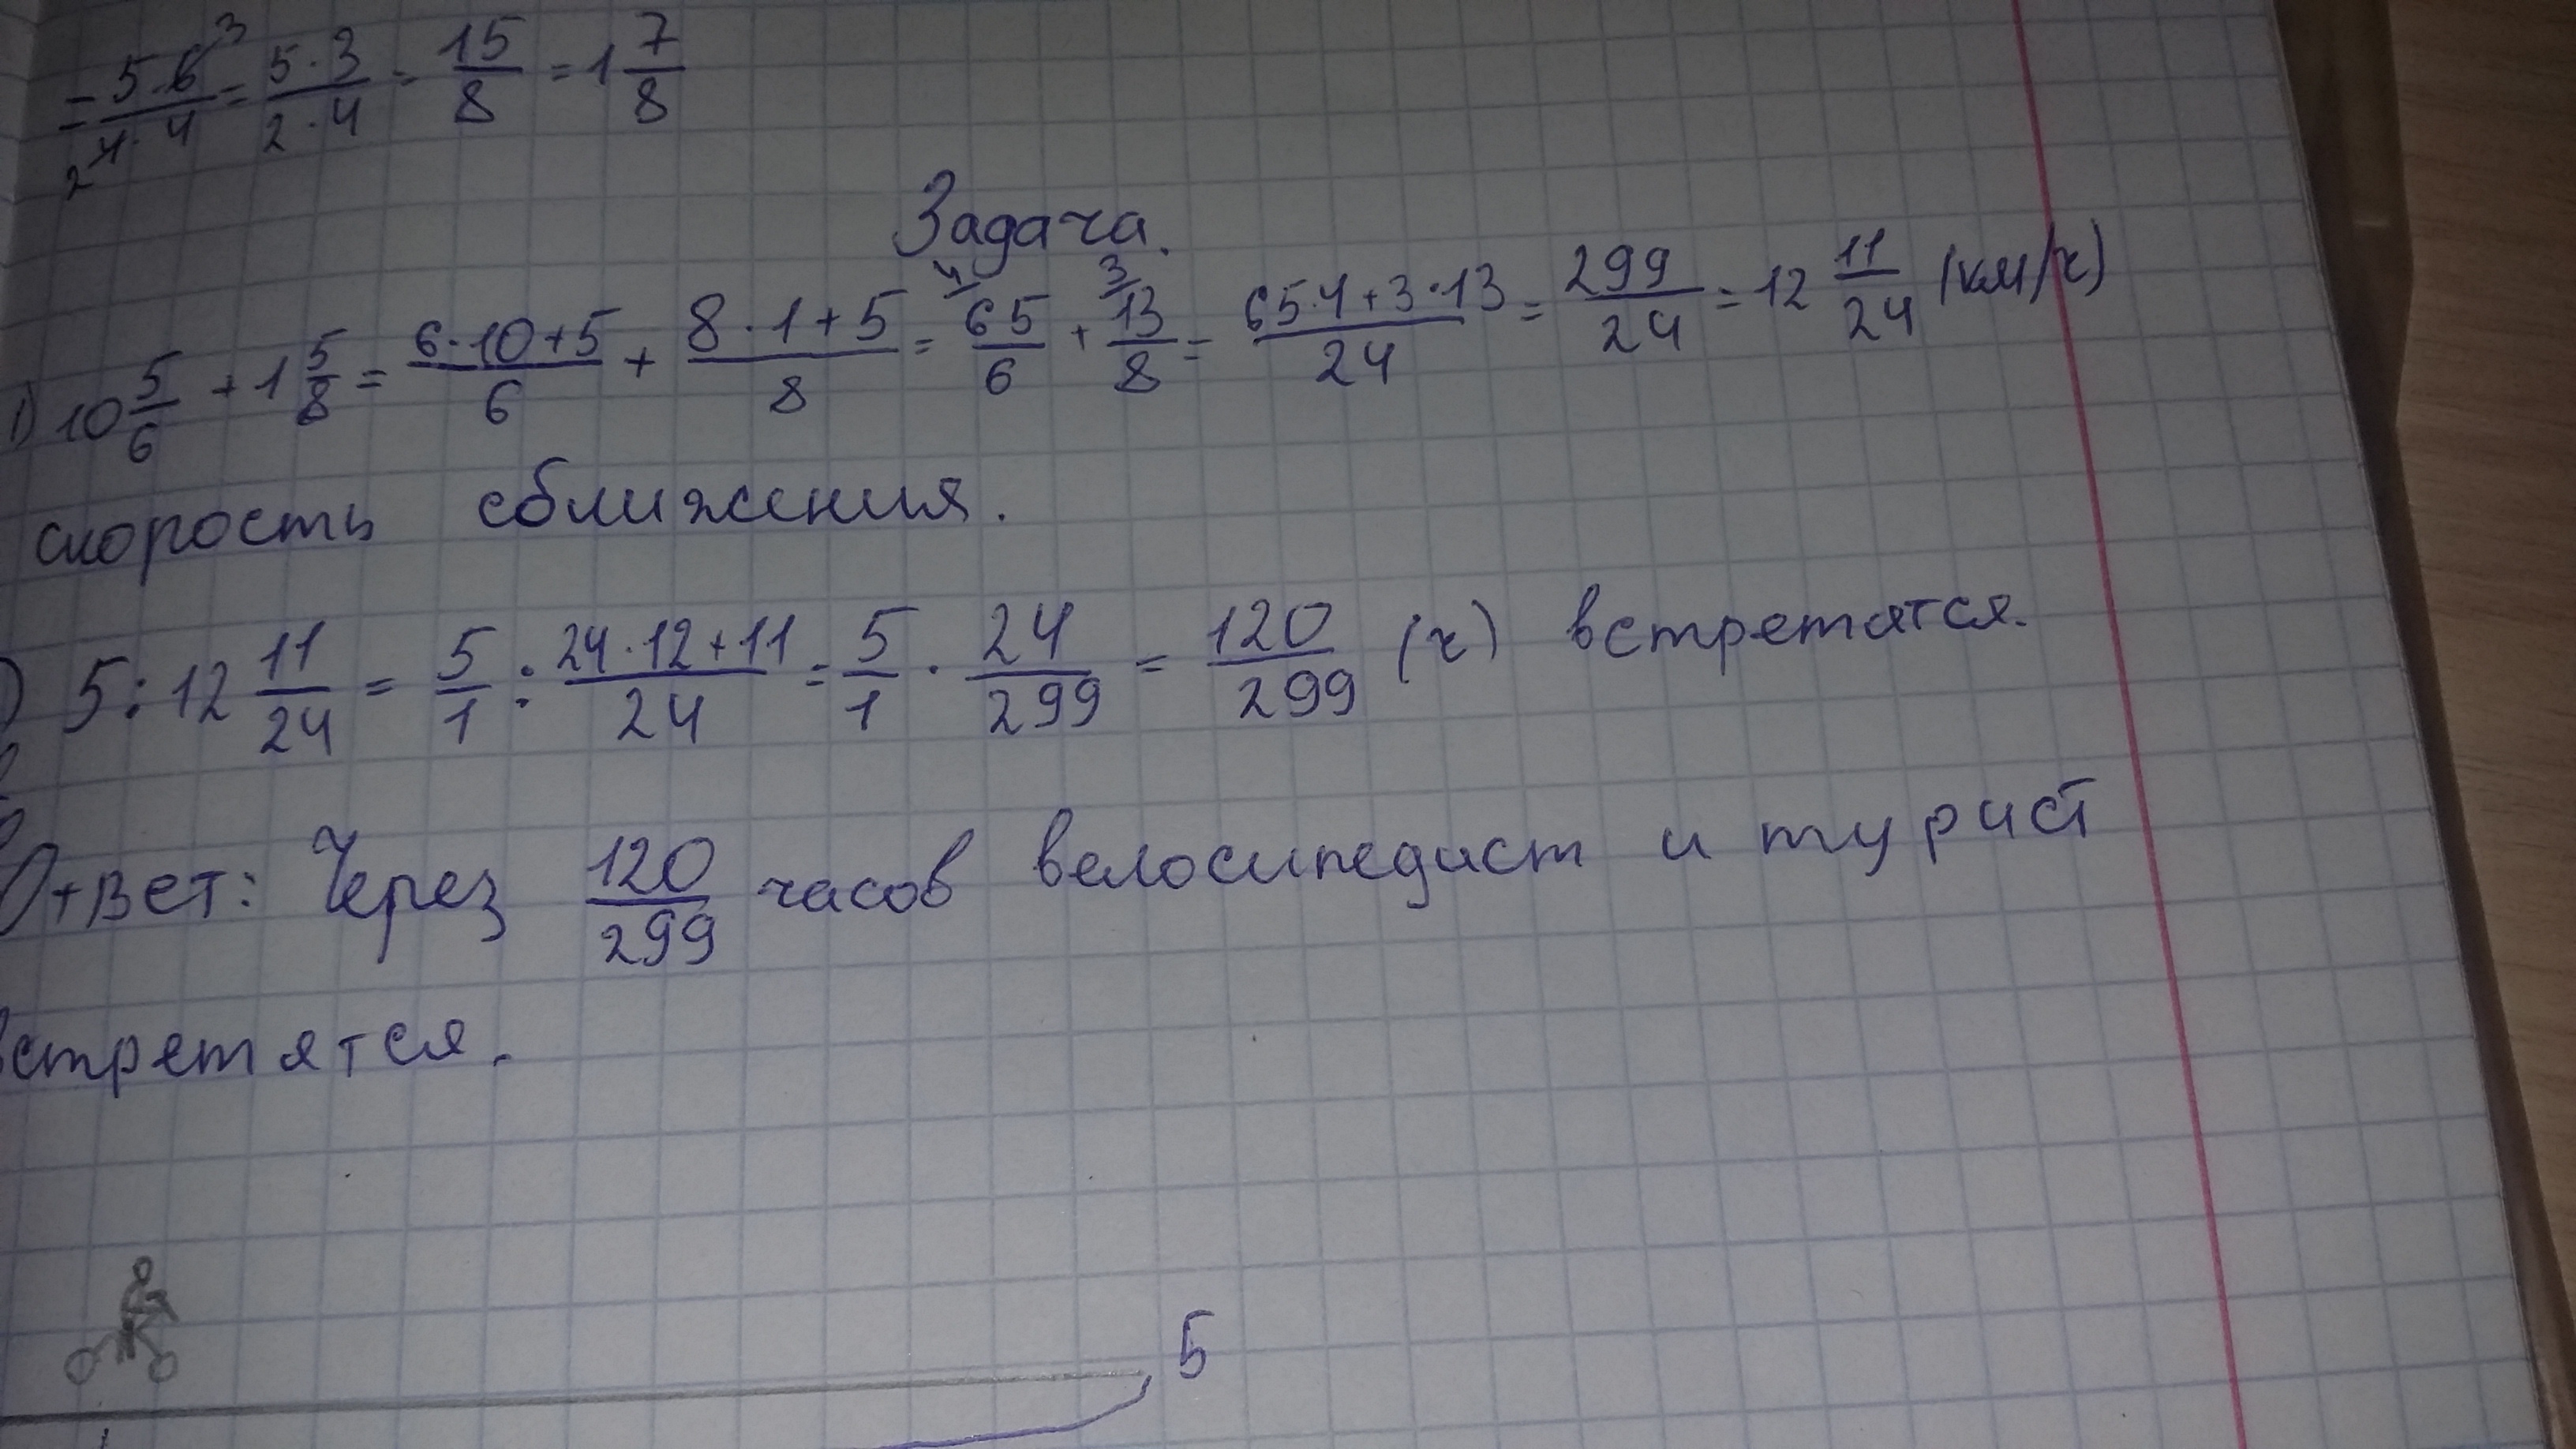 = 5·6/4·4 = 5·3/2·4 = 15/8 = 1 7/8
3
2
Задача.
1) 10 5/6 + 1 5/8 = 6·10+5/6 + 8·1+5/8 = 4/ 65/6 + 3/ 13/8 = 65·4+3·13/24 = 299/24 = 12 11/24 (км/ч)
скорость сближения.
) 5 : 12 11/24 = 5/1 : 24·12+11/24 = 5/1 · 24/299 = 120/299 (ч) встретятся.
Ответ: Через 120/299 часов велосипедист и турист
встретятся.
5